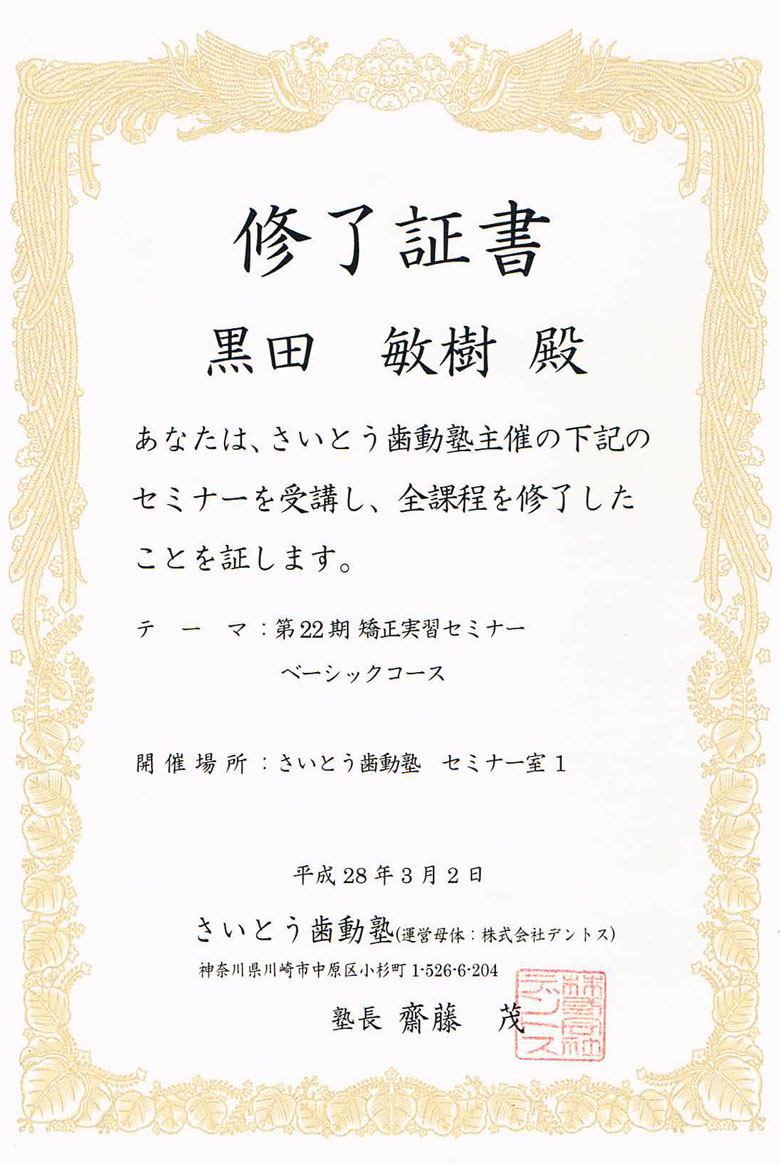 修了証書
黒田　敏樹 殿
あなたは、さいとう歯動塾主催の下記の
セミナーを受講し、全課程を修了した
ことを証します。
テーマ：第22期 矯正実習セミナー
ベーシックコース
開催場所：さいとう歯動塾　セミナー室1
平成28年3月2日
さいとう歯動塾(運営母体：株式会社デントス)
神奈川県川崎市中原区小杉町1-526-6-204
塾長 齋藤　茂
株式会社
デントス